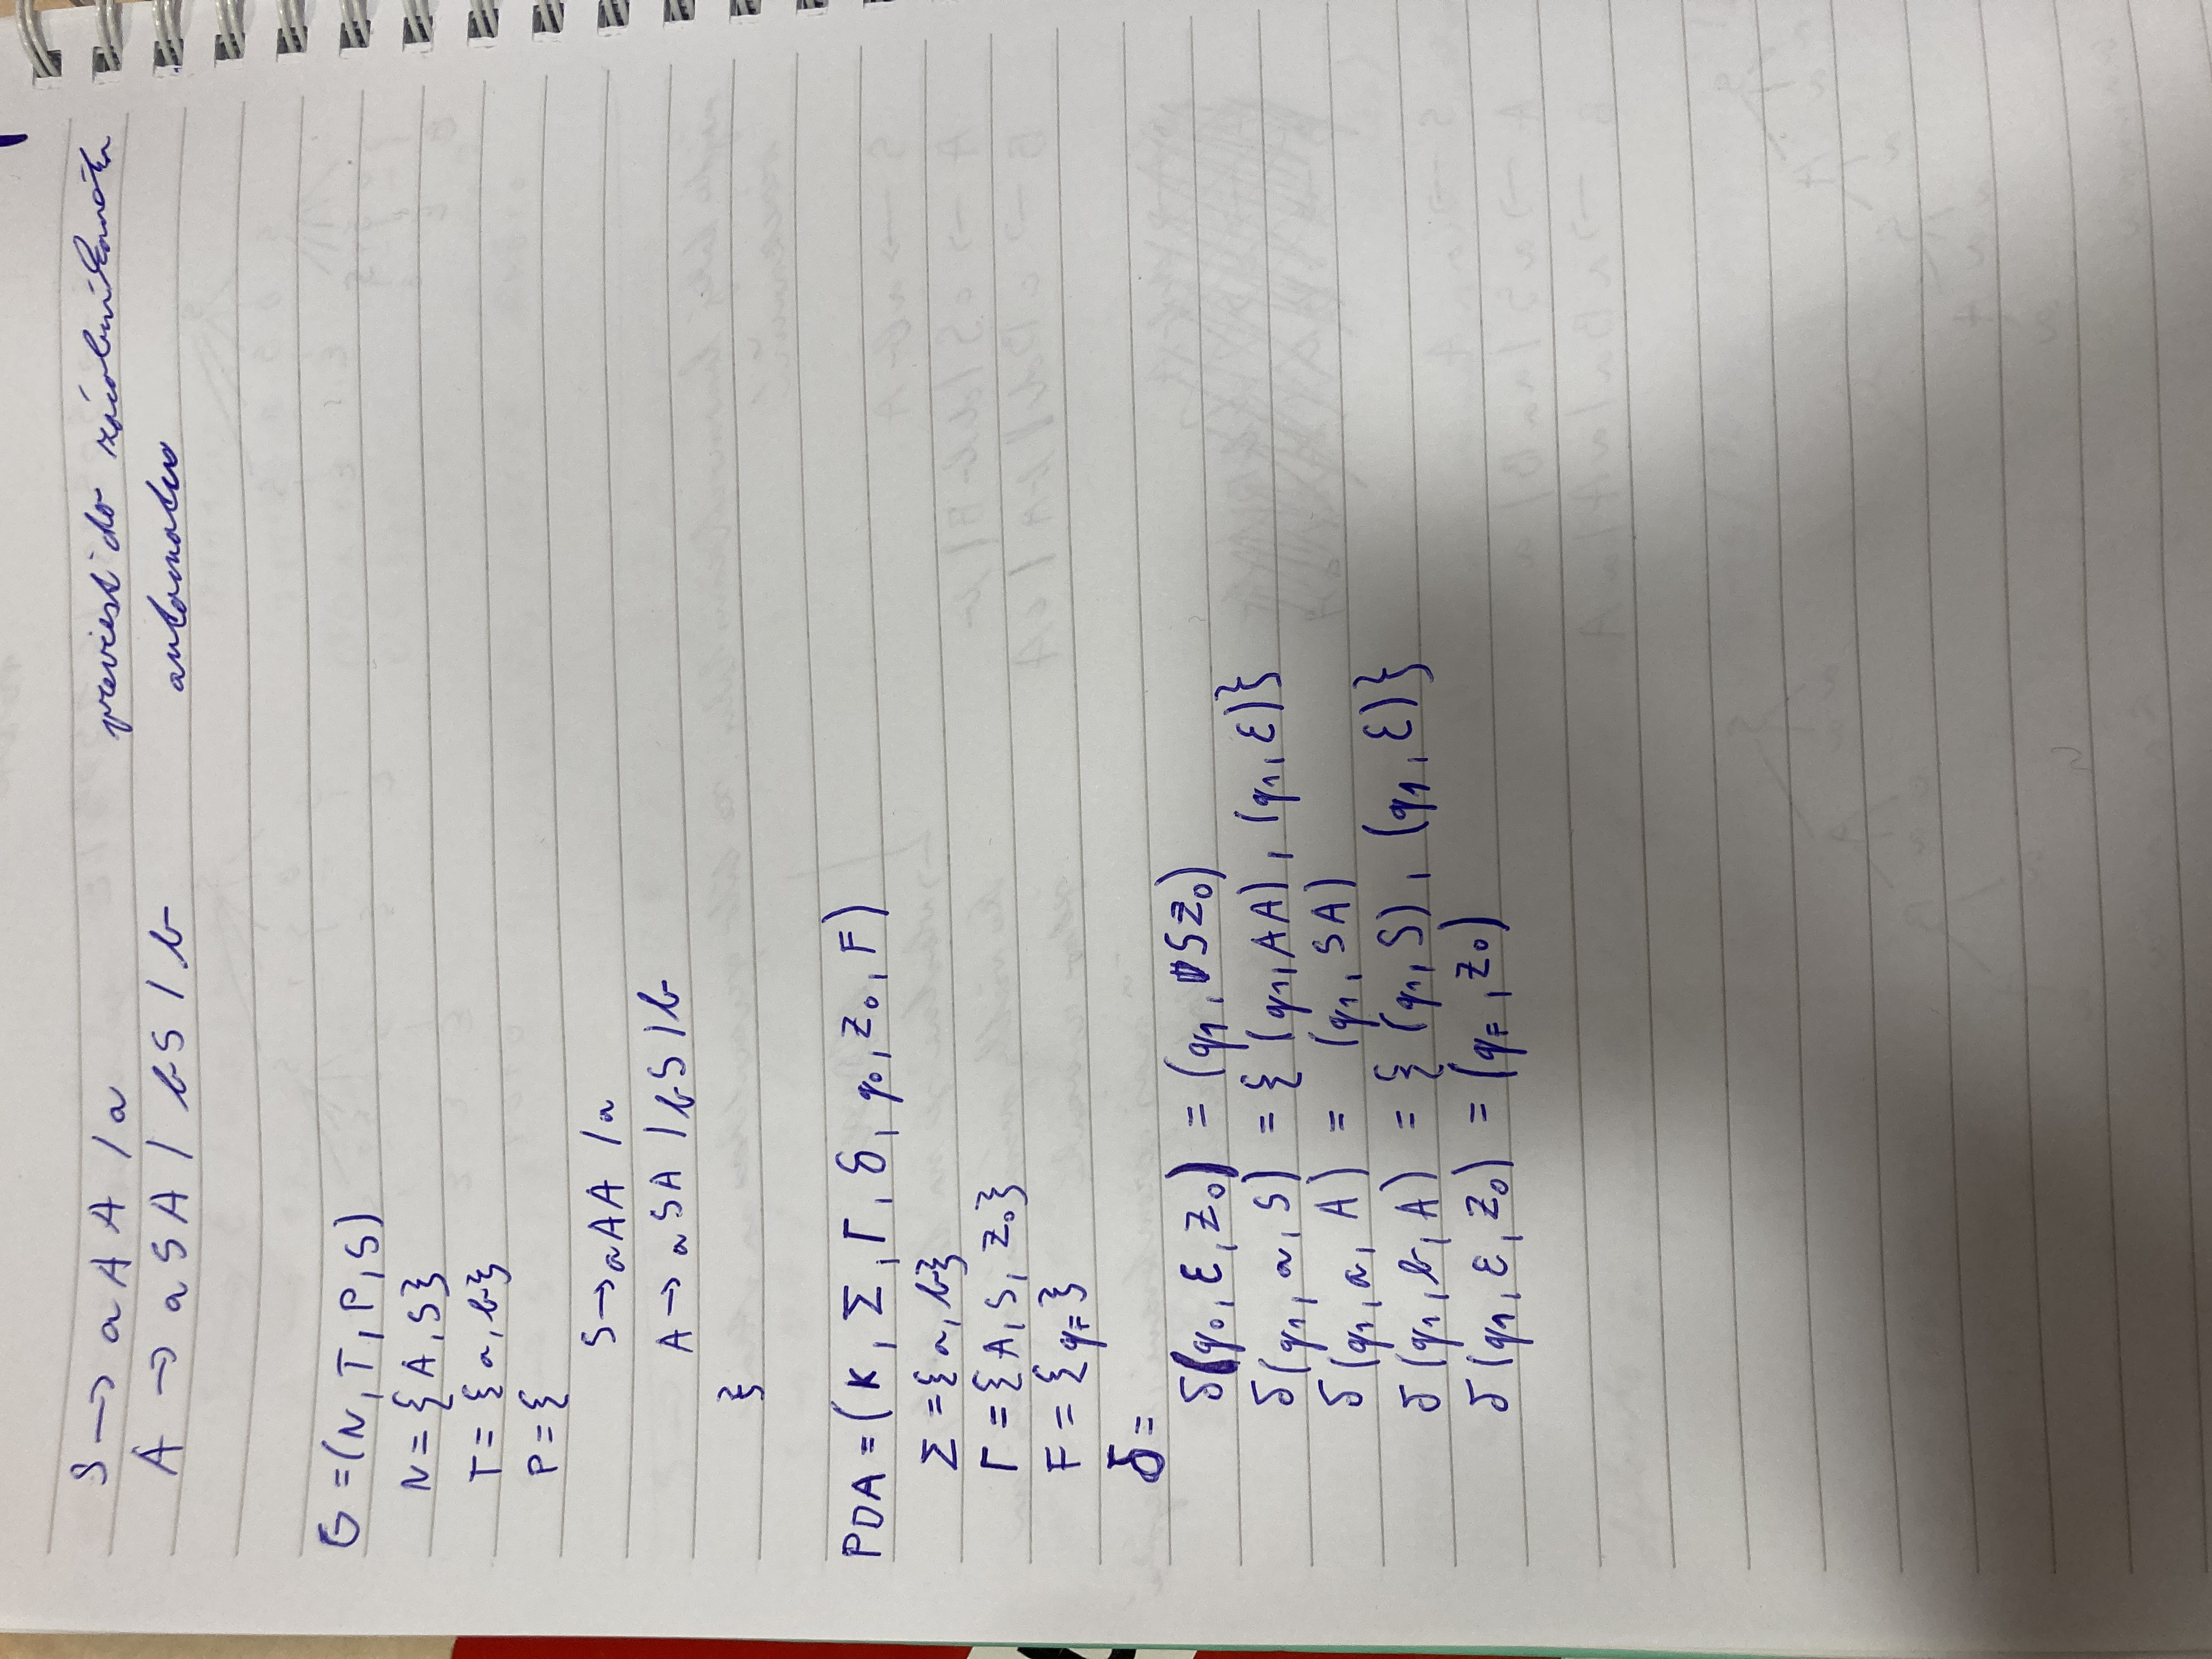 S → aAA / a previesť do zásobníkového
A → aSA / bS / b automatu
G = (N, T, P, S)
N = {A, S}
T = {a, b}
P = {
S → aAA / a
A → aSA / bS / b
}
PDA = (K, Σ, Γ, δ, q₀, Z₀, F)
Σ = {a, b}
Γ = {A, S, Z₀}
F = {qF}
δ =
δ(q₀, ε, Z₀) = (q₁, SZ₀)
δ(q₁, a, S) = {(q₁, AA), (q₁, ε)}
δ(q₁, a, A) = (q₁, SA)
δ(q₁, b, A) = {(q₁, S), (q₁, ε)}
δ(q₁, ε, Z₀) = (qF, Z₀)